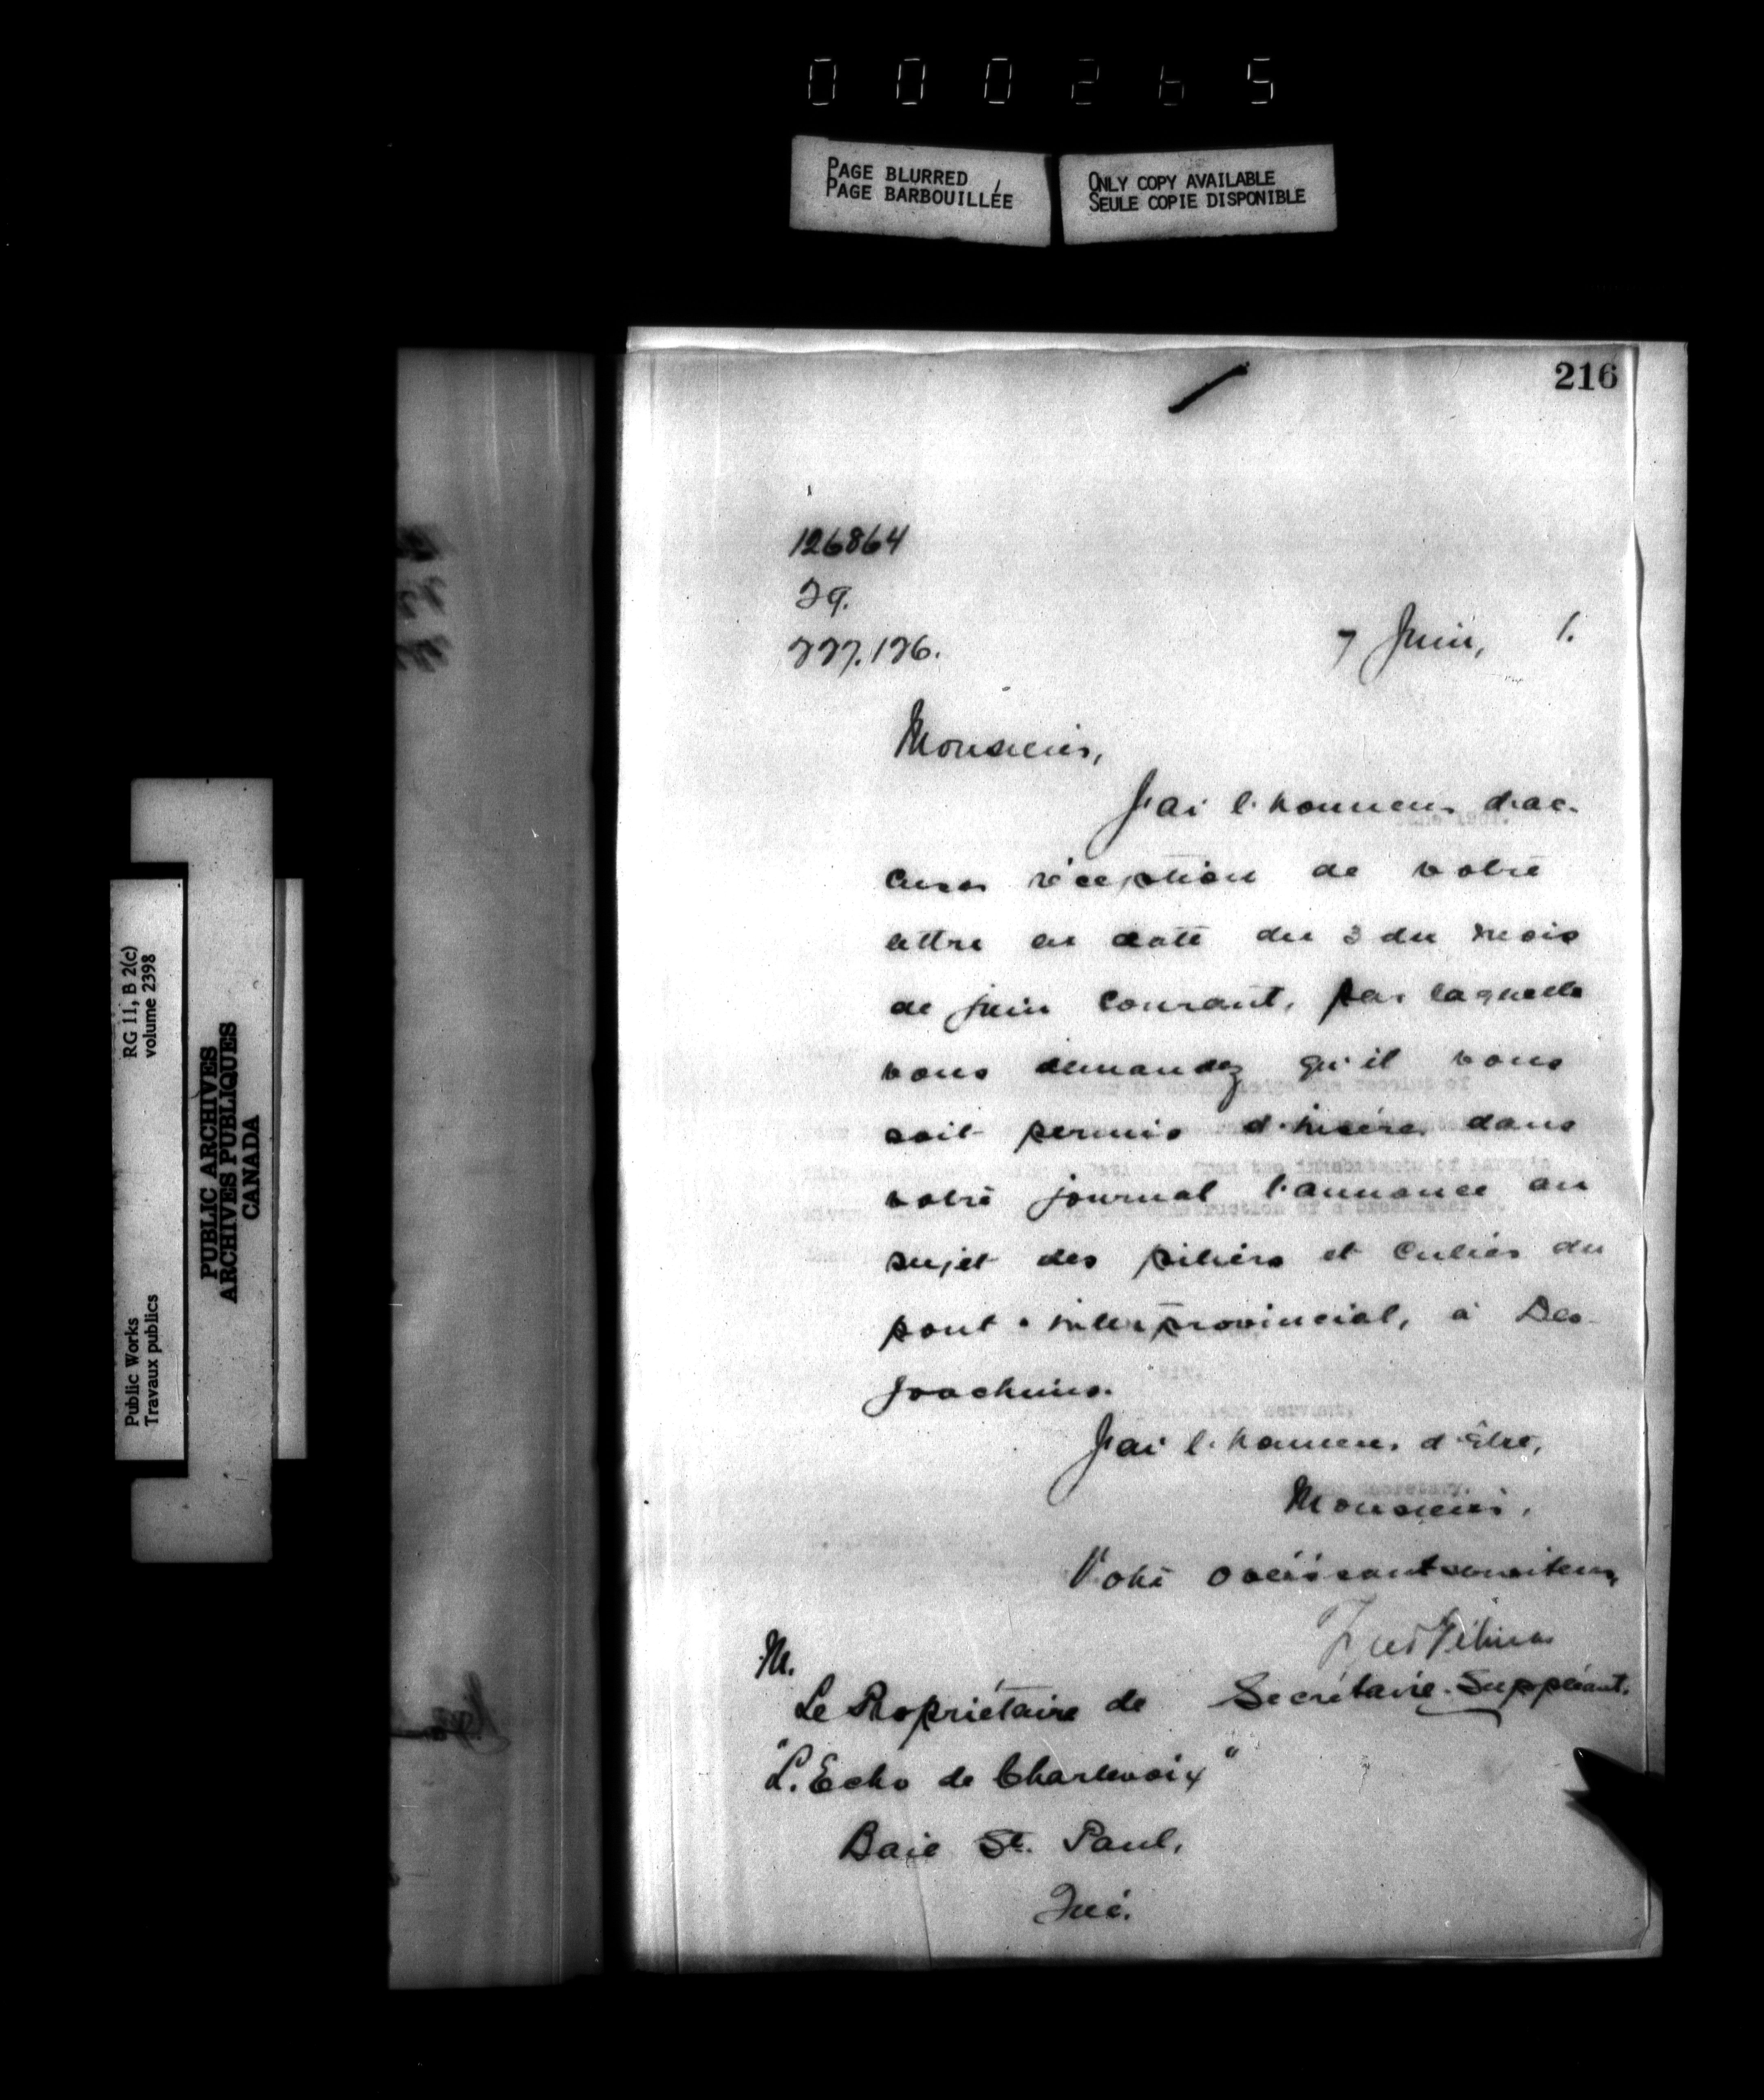 000265
PAGE BLURRED
PAGE BARBOUILLÉE
ONLY COPY AVAILABLE
SEULE COPIE DISPONIBLE
RG 11, B 2(c)
volume 2398
Public Works
Travaux publics
PUBLIC ARCHIVES
ARCHIVES PUBLIQUES
CANADA
216
126864
29.
227.126.
7 Juin, 1.
Monsieur,
J'ai l'honneur d'ac-
cuser réception de votre
lettre en date du 3 du mois
de juin courant, par laquelle
vous demandez qu'il vous
soit permis d'insérer dans
votre journal l'annonce au
sujet des piliers et culées du
pont interprovincial, à Des-
Joachims.
J'ai l'honneur d'être,
Monsieur,
Votre obéissant serviteur,
Secrétaire-Suppléant.
M.
Le Propriétaire de
"L'Echo de Charlevoix"
Baie St. Paul,
Qué.